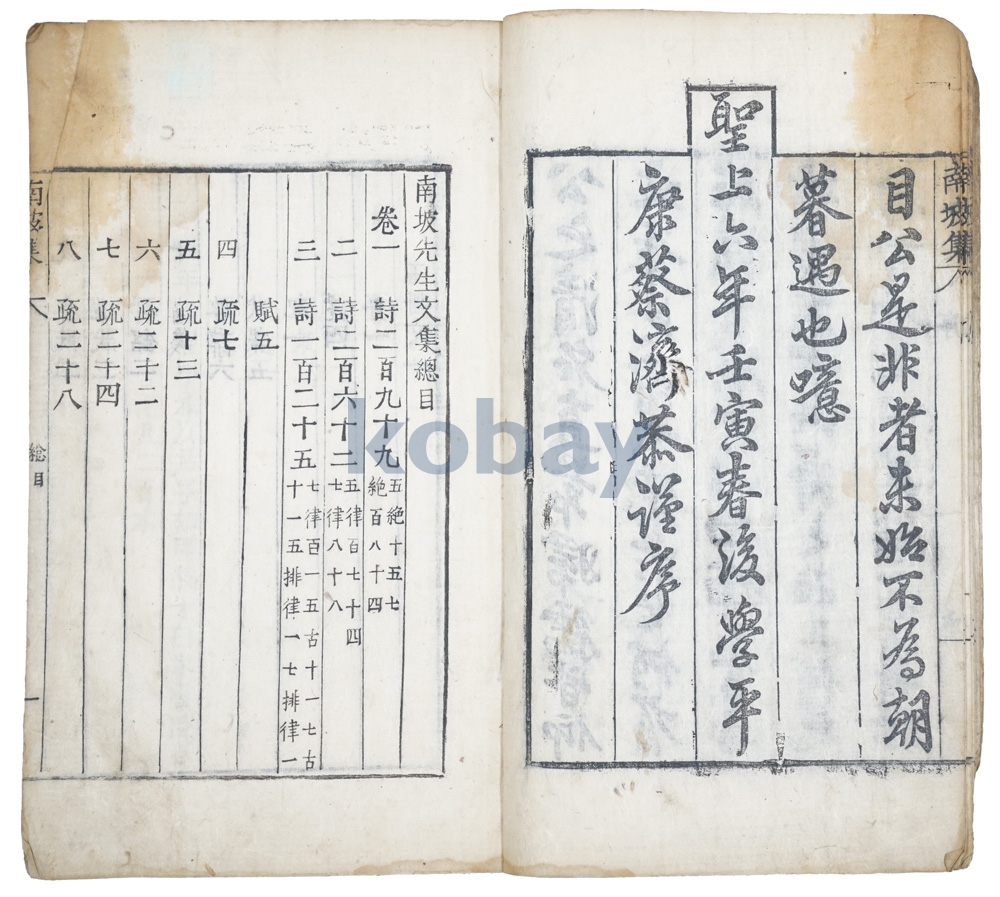 目公是非者未始不為朝
暮遇也噫
聖上六年壬寅春後學平
康蔡濟恭謹序
南坡集
南坡先生文集總目
卷一 詩二百九十九 五絶十五七絶百八十四
二 詩二百六十二 五律百七十四七律八十八
三 詩一百二十五 七律百一五古十一七古十一五排律一七排律一
賦五
四 疏七
五 疏十三
六 疏二十二
七 疏二十四
八 疏二十八
南坡集
總目
一
kobay